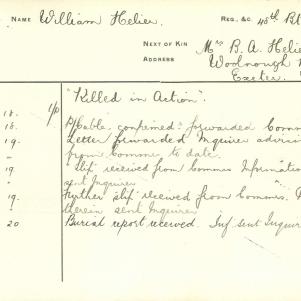 NAME William Helier. REG., &c. 45th Bt
NEXT OF KIN Mrs B. A. Helie
ADDRESS Woolnough
Exeter.
"Killed in Action".
18.
18. confirmed forwarded Comm
19. Letter forwarded Inquirer advisin
from Commrs to date.
19 " slip received from Commrs Information
" sent Inquirer
19. Further slip received from Commrs.
" therein sent Inquirer
20 Burial report received. Inf sent Inquir